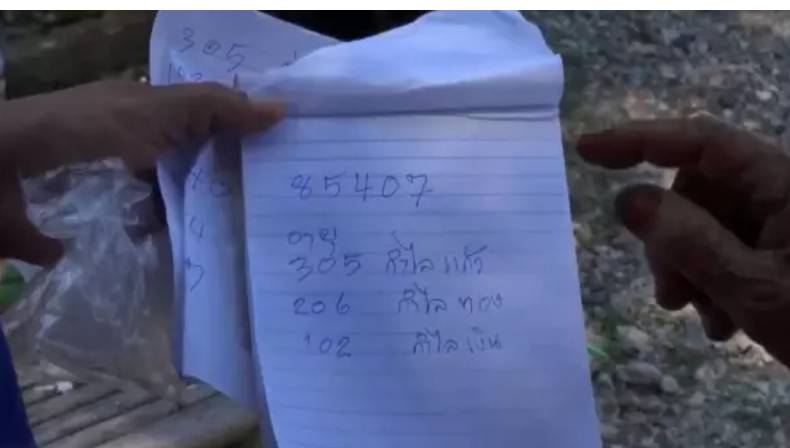 305
85407
อายุ
305 กำไล แก้ว
206 กำไล ทอง
102 กำไล เงิน